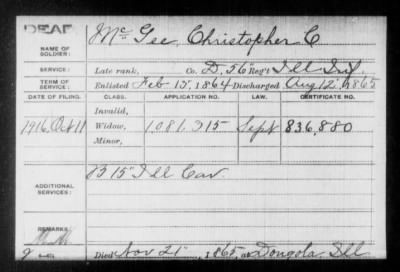 DEAF
NAME OF SOLDIER: McGee, Christopher C
SERVICE: Late rank, Co. D, 56" Reg't Ill Inf.
TERM OF SERVICE: Enlisted Feb 15, 1864 Discharged Aug 12, 1865
DATE OF FILING. CLASS. APPLICATION NO. LAW. CERTIFICATE NO.
Invalid,
1916, Oct 11 Widow, 1,081,315 Sept 836,880
Minor,
ADDITIONAL SERVICES: B 15" Ill Cav
REMARKS:
Died Nov 21", 1865, at Dongola Ill